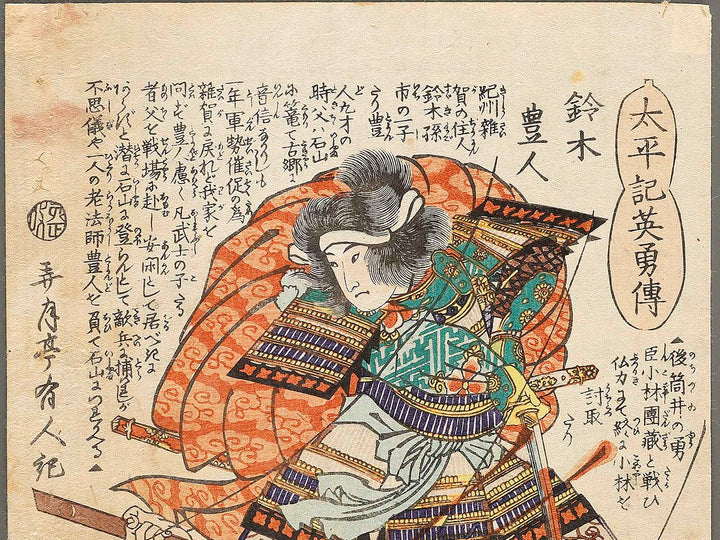 太平記英勇傳
鈴木
豊人
紀州雜
賀の住人
鈴木孫
市の一子
たり豊
人九才の
時父ハ石山
に篭て古郷
音信なりしも
一年軍勢催足の為
雜賀に戻れバ我家を
問ず豊人慮らく凡武士の子たる
者父を戦場に赴し安閑として居べきに
あらずと潜に石山に登らんとして敵兵に捕れしが
不思儀や一人の老法師豊人を負て石山に
弄月亭有人記
後筒井の勇
臣小林團蔵と戦ひ
仏力にて終に小林を
討取
たり